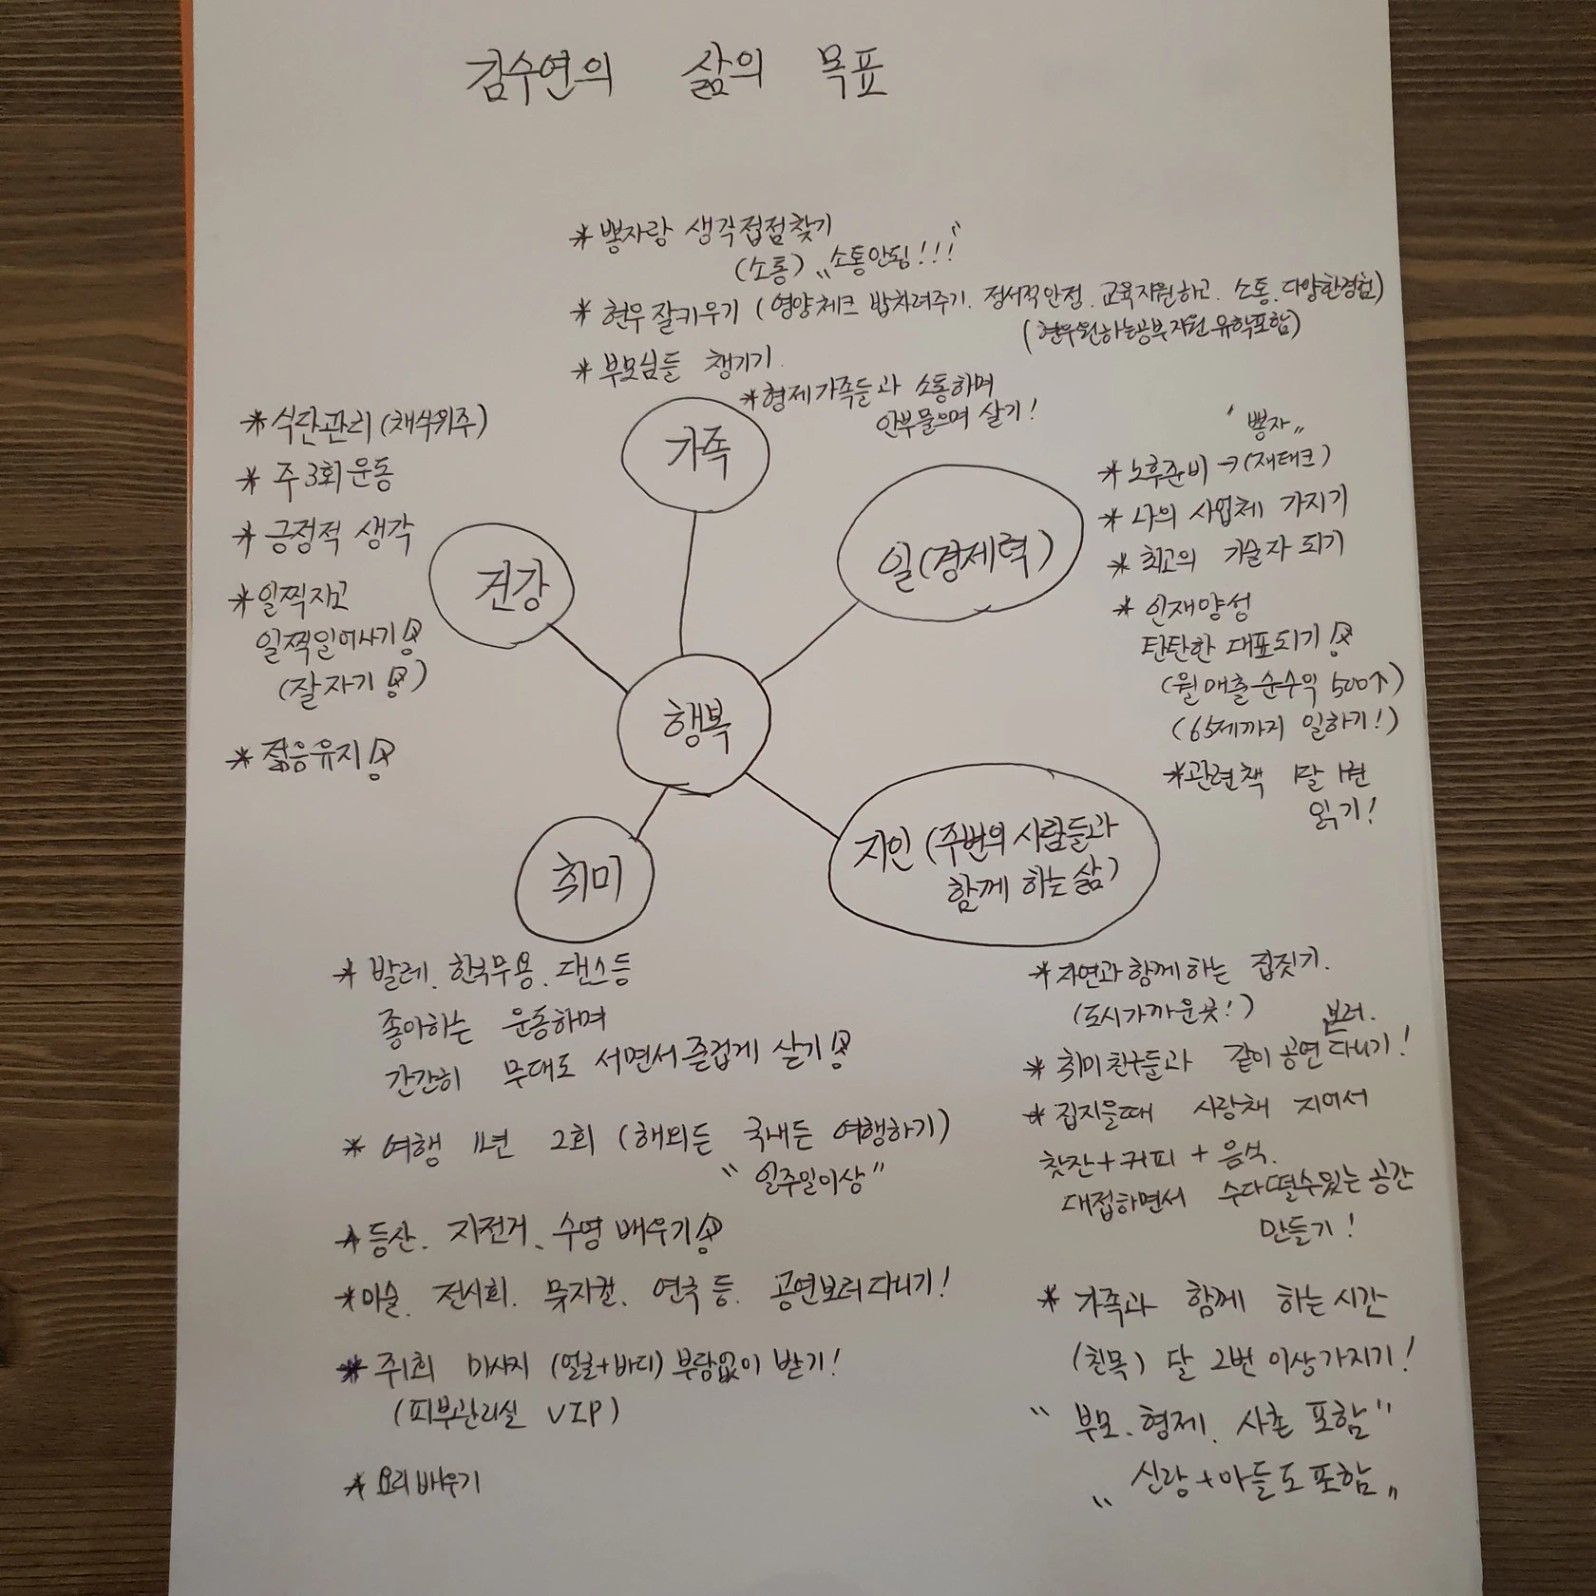 김수연의 삶의 목표
* 뽕자랑 생각접점찾기
(소통) "소통안됨!!!"
* 현우 잘키우기 (영양체크 밥차려주기. 정서적안정. 교육지원하고. 소통. 다양한경험)
(현우원하는공부지원 유학포함)
* 부모님들 챙기기.
* 형제가족들과 소통하며
안부물으며 살기!
가족
* 식단관리(채식위주)
* 주 3회 운동
* 긍정적 생각
* 일찍자고
일찍일어나기!
(잘자기!)
* 젊음유지!
건강
"뽕자"
* 노후준비 → (재태크)
* 나의 사업체 가지기
* 최고의 기술자 되기
* 인재양성
탄탄한 대표되기!
(월매출순수익 500↑)
(65세까지 일하기!)
* 관련책 1달 1번
읽기!
일(경제력)
행복
취미
지인 (주변의 사람들과
함께 하는 삶)
* 발레. 한국무용. 댄스등
좋아하는 운동하며
간간히 무대도 서면서 즐겁게 살기!
* 여행 1년 2회 (해외든 국내든 여행하기)
"일주일이상"
* 등산. 자전거. 수영 배우기!
* 미술. 전시회. 뮤지컬. 연극 등. 공연보러다니기!
* 주1회 마사지 (얼굴+바디) 부담없이 받기!
(피부관리실 VIP)
* 요리배우기
* 자연과 함께 하는 집짓기.
(도시가까운곳!)
* 취미친구들과 같이 공연 보러. 다니기!
* 집지을때 사랑채 지어서
찻잔+커피+음식.
대접하면서 수다떨수있는 공간
만들기!
* 가족과 함께 하는 시간
(친목) 달 2번 이상가지기!
"부모. 형제. 사촌 포함"
"신랑+아들도 포함"